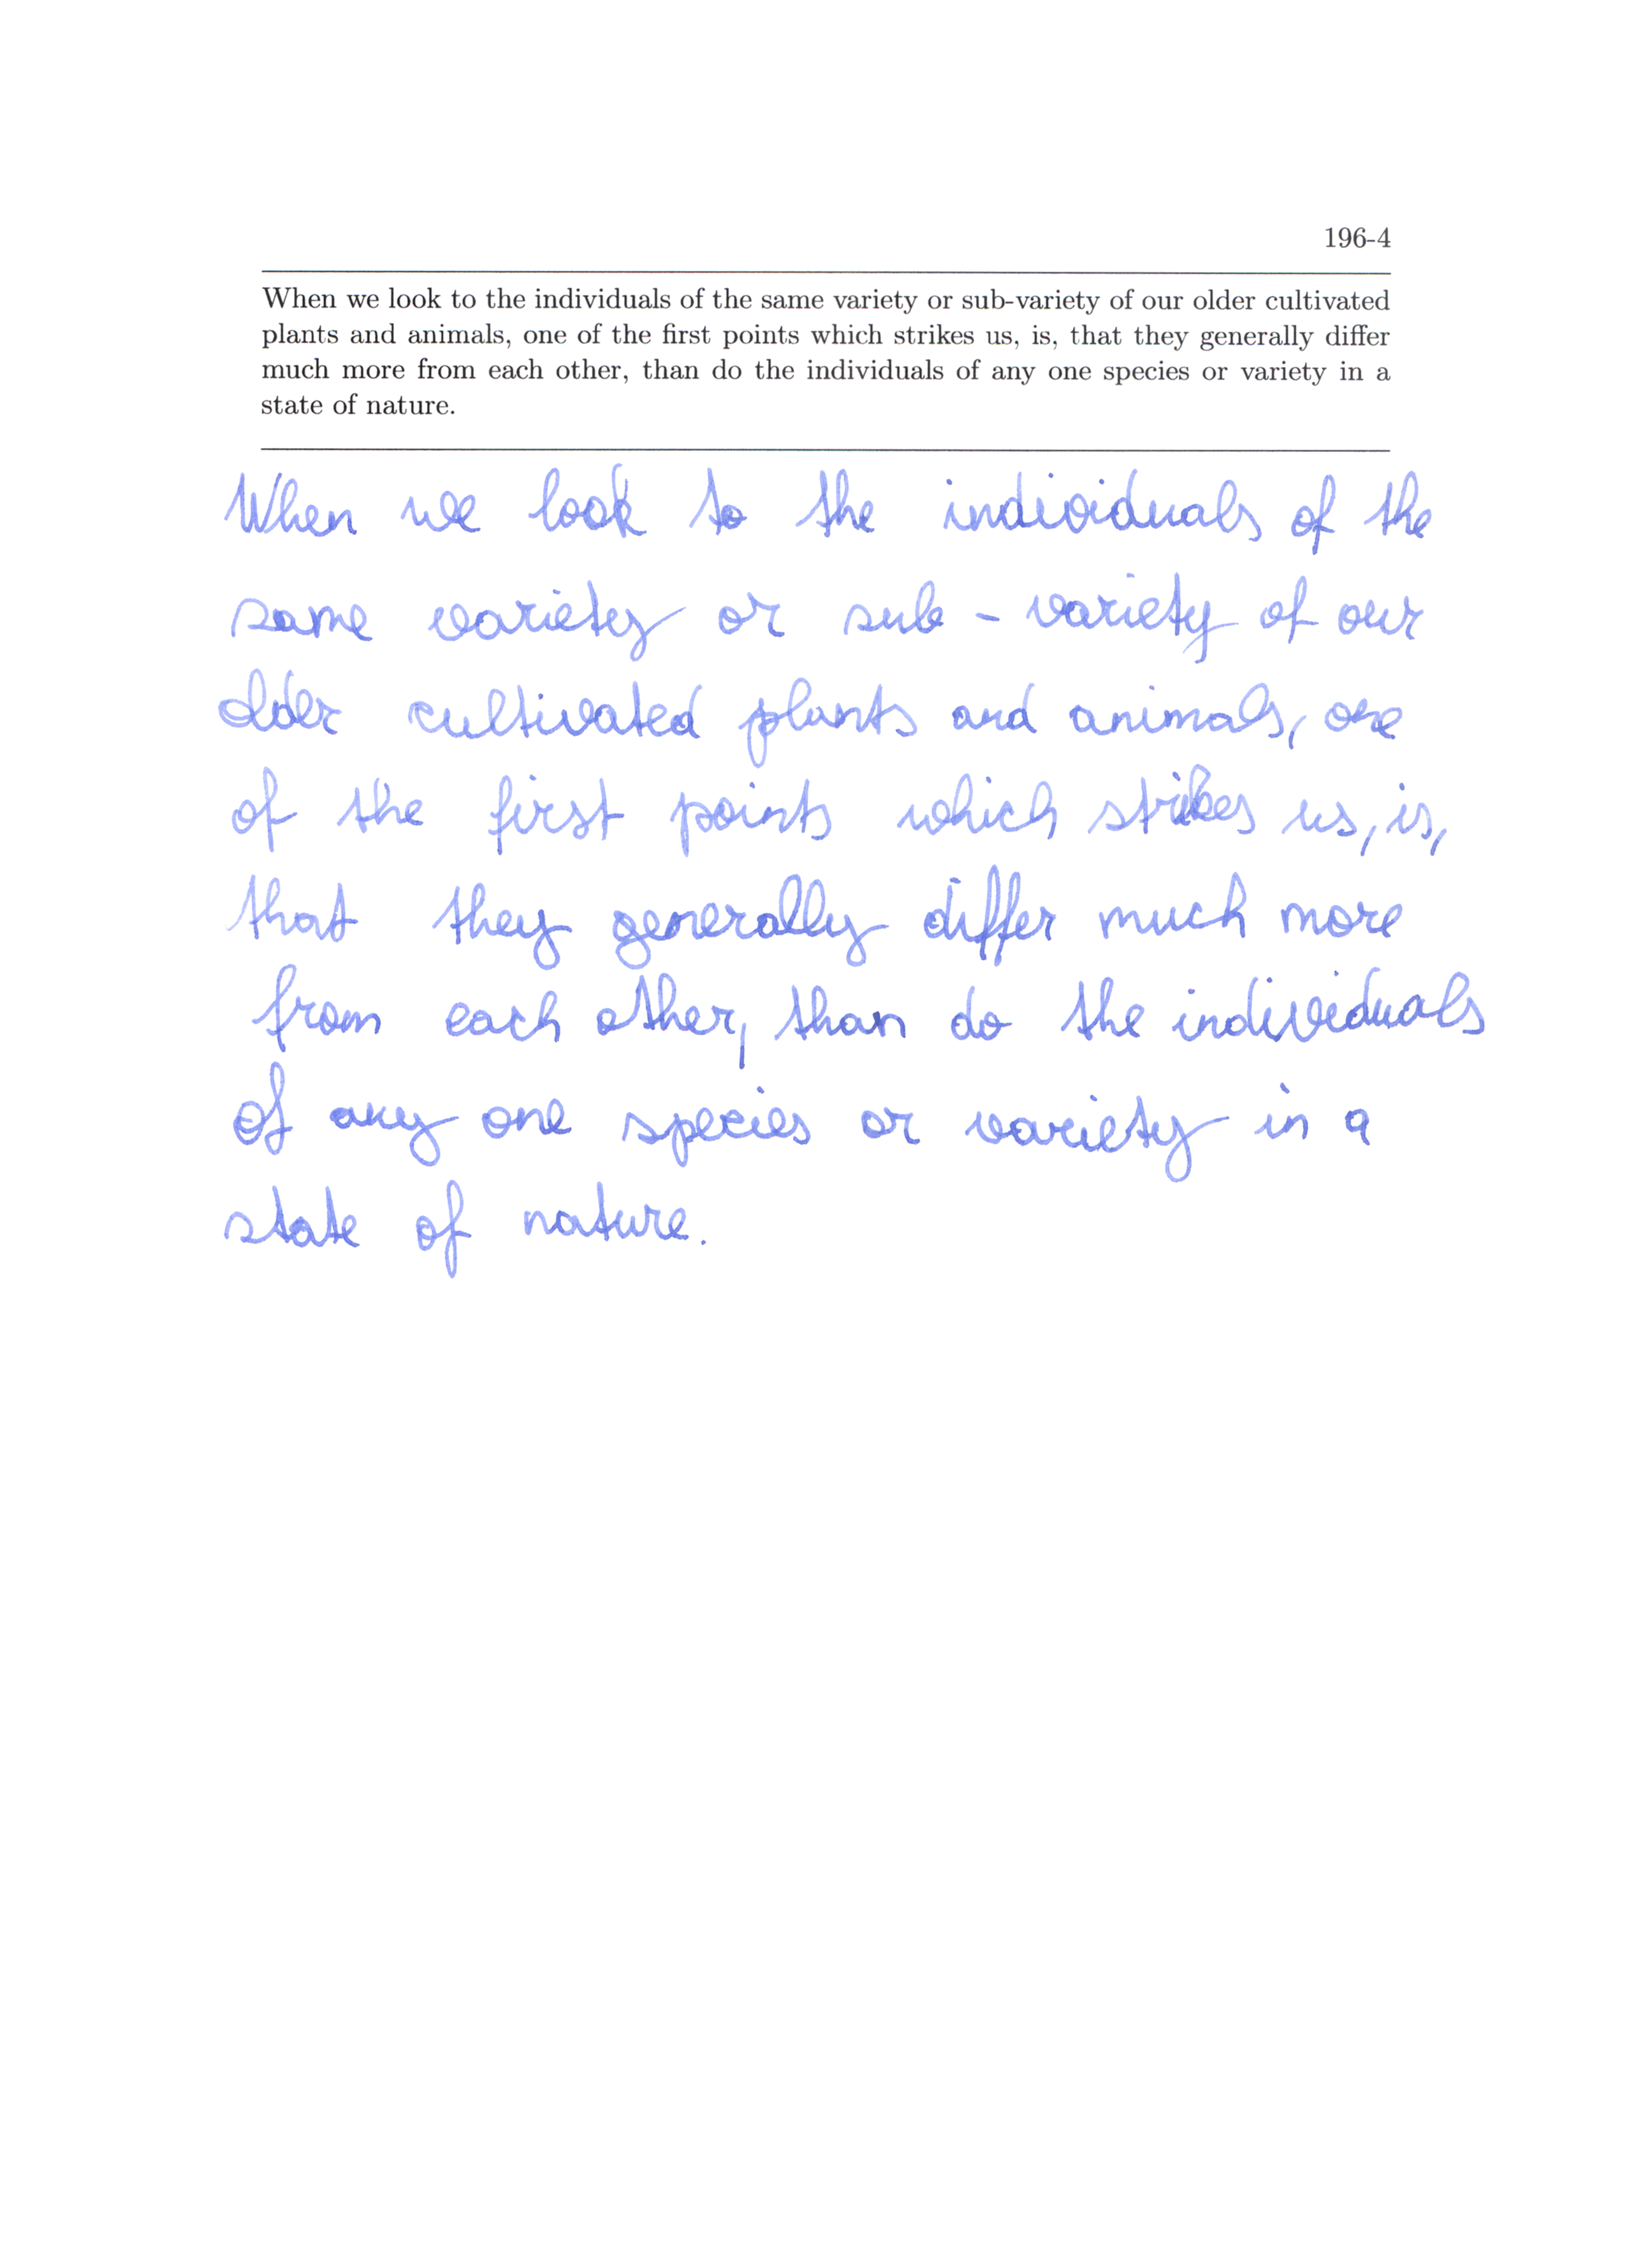 196-4
When we look to the individuals of the same variety or sub-variety of our older cultivated
plants and animals, one of the first points which strikes us, is, that they generally differ
much more from each other, than do the individuals of any one species or variety in a
state of nature.
When we look to the individuals of the
same variety or sub - variety of our
older cultivated plants and animals, one
of the first points which strikes us, is,
that they generally differ much more
from each other, than do the individuals
of any one species or variety in a
state of nature.